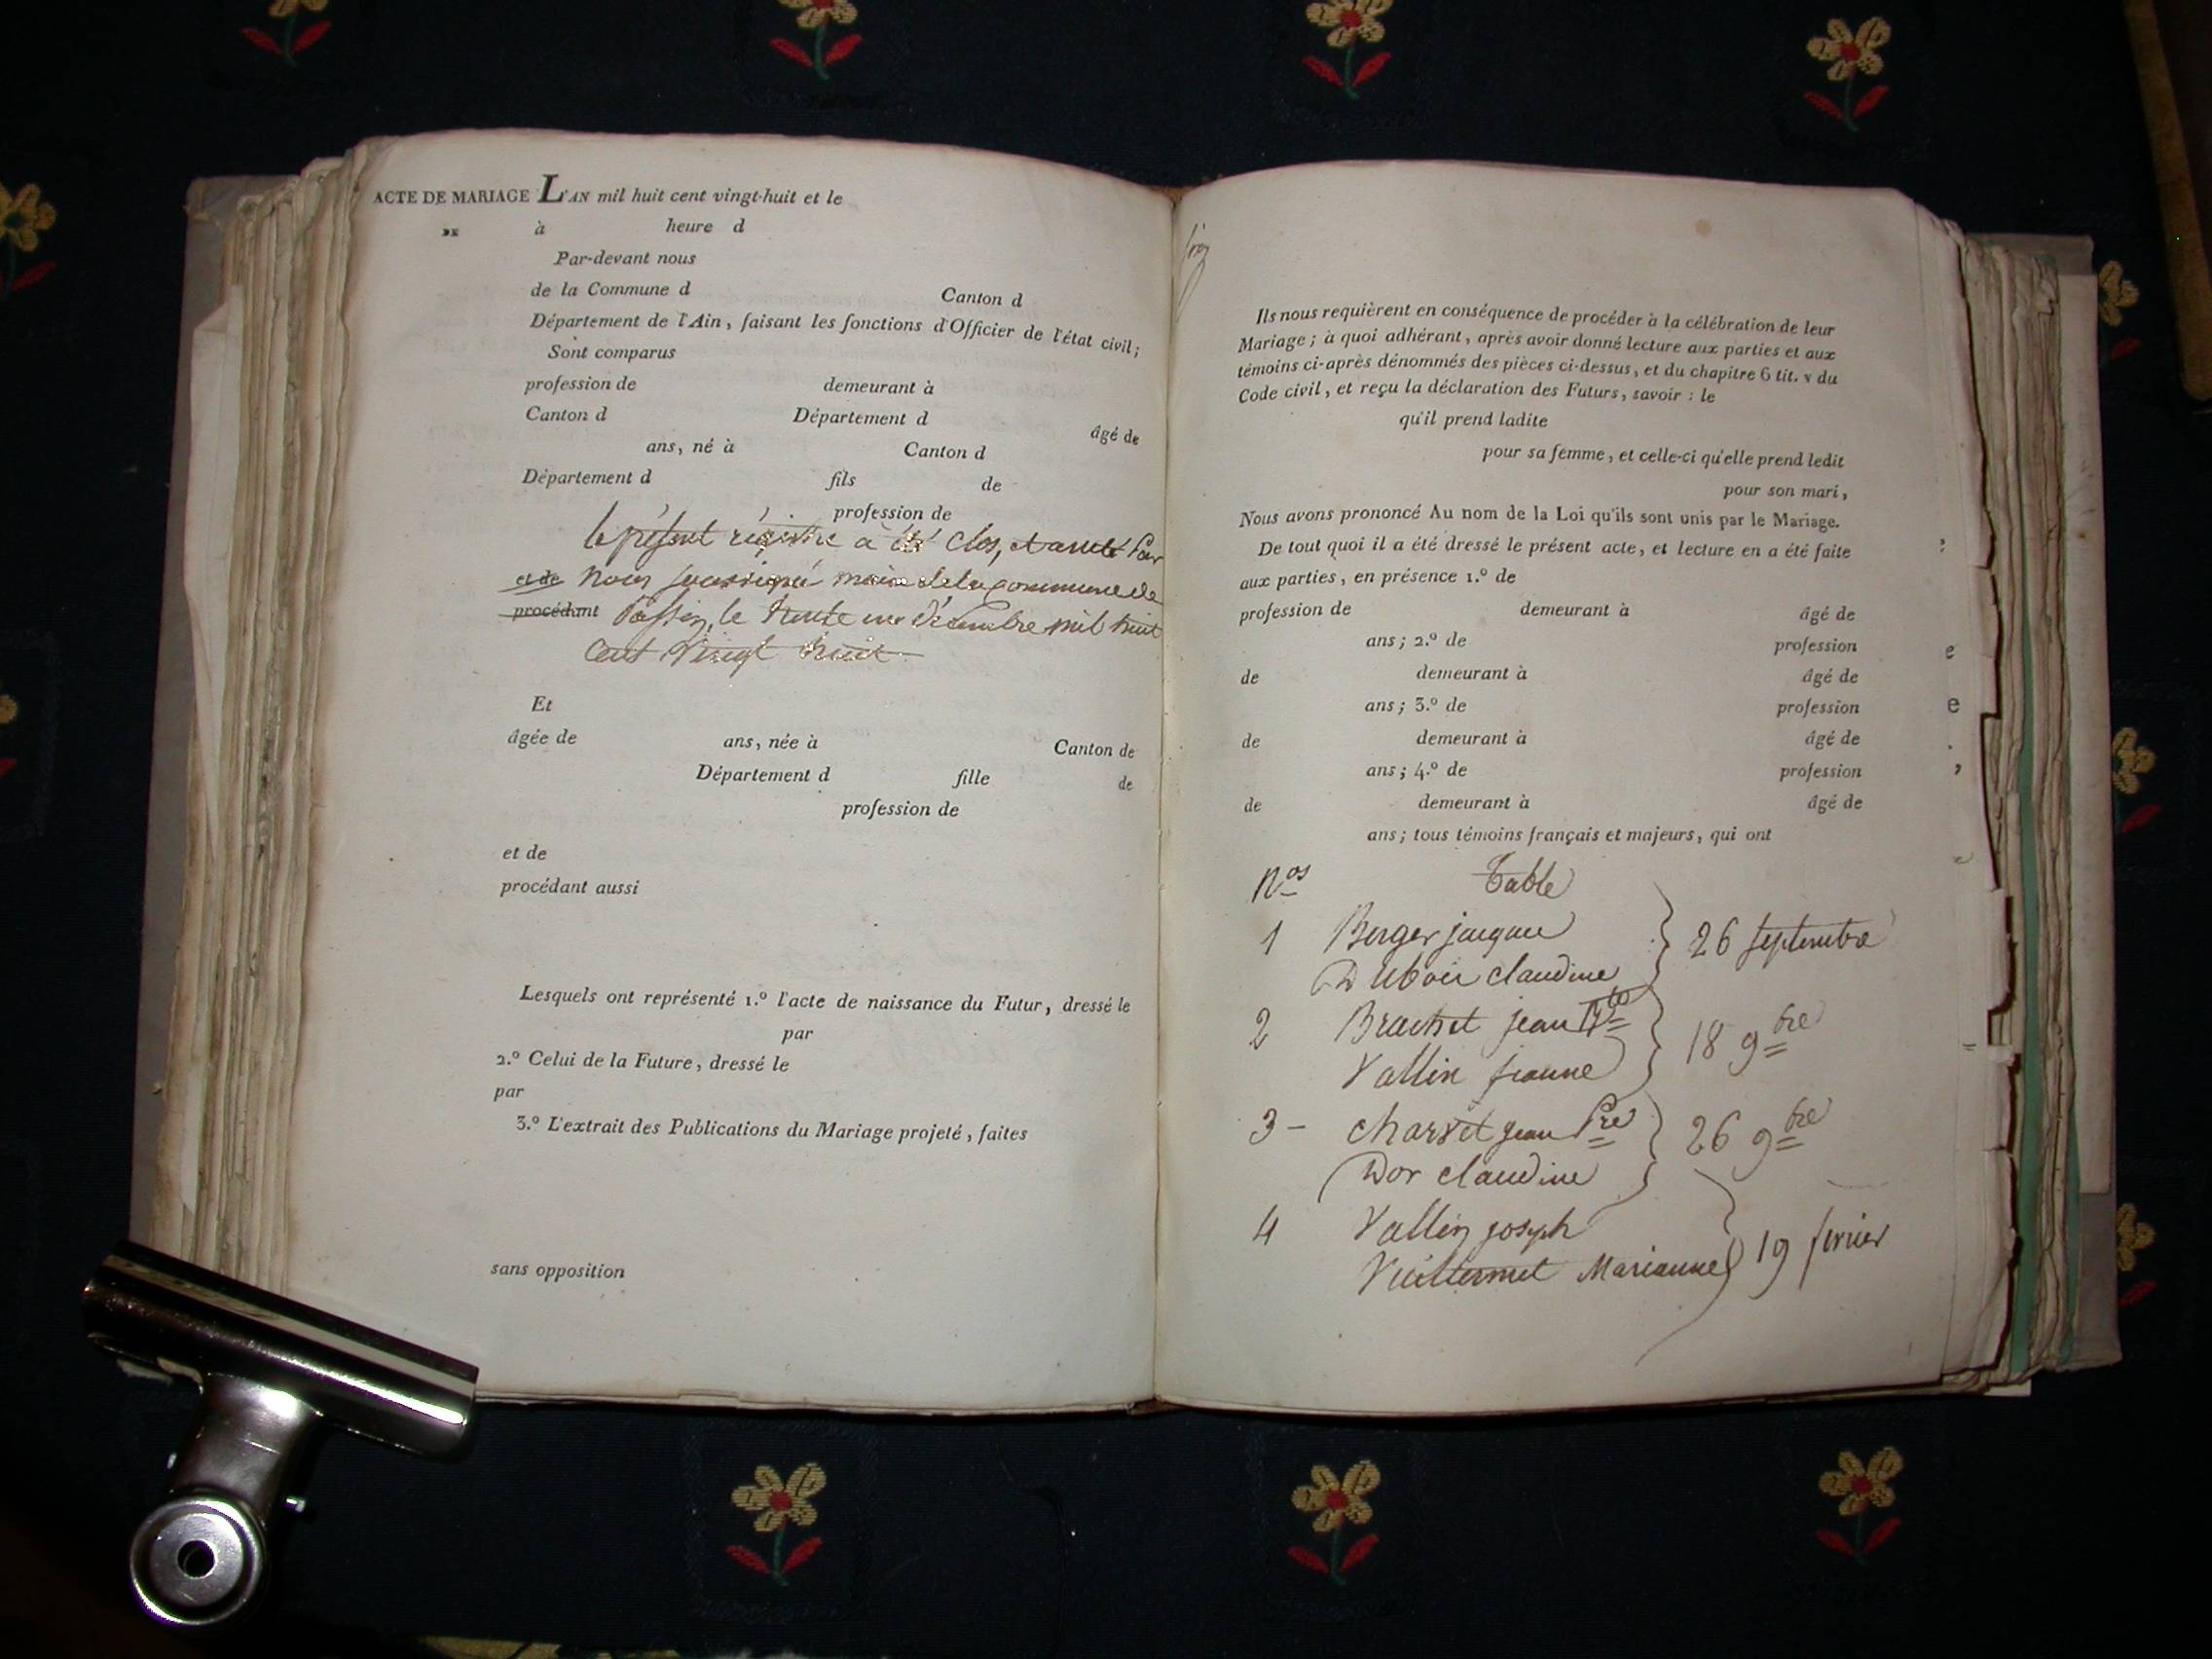 ACTE DE MARIAGE L'AN mil huit cent vingt-huit et le
à heure d
Par-devant nous
de la Commune d Canton d
Département de l'Ain, faisant les fonctions d'Officier de l'état civil;
Sont comparus
profession de demeurant à
Canton d Département d âgé de
ans, né à Canton d
Département d fils de
profession de
le présent régistre à été clos, et arreté par
et de nous soussigné maire de la commune de
procédant le trente un décembre mil huit
cent vingt huit
Et
âgée de ans, née à Canton de
Département d fille de
profession de
et de
procédant aussi
Lesquels ont représenté 1.º l'acte de naissance du Futur, dressé le
par
2.º Celui de la Future, dressé le
par
3.º L'extrait des Publications du Mariage projeté, faites
sans opposition
Ils nous requièrent en conséquence de procéder à la célébration de leur
Mariage; à quoi adhérant, après avoir donné lecture aux parties et aux
témoins ci-après dénommés des pièces ci-dessus, et du chapitre 6 tit. v du
Code civil, et reçu la déclaration des Futurs, savoir : le
qu'il prend ladite
pour sa femme, et celle-ci qu'elle prend ledit
pour son mari,
Nous avons prononcé Au nom de la Loi qu'ils sont unis par le Mariage.
De tout quoi il a été dressé le présent acte, et lecture en a été faite
aux parties, en présence 1.º de
profession de demeurant à âgé de
ans; 2.º de profession
de demeurant à âgé de
ans; 3.º de profession
de demeurant à âgé de
ans; 4.º de profession
de demeurant à âgé de
ans; tous témoins français et majeurs, qui ont
Nos Table
1 Berger jacques 26 septembre
Dubois claudine
2 Brachet jean Bte 18 9bre
Vallin jeanne
3 - Charvet jean Pre 26 9bre
Dor claudine
4 Vallin joseph 19 fevrier
Vuillermet Marianne